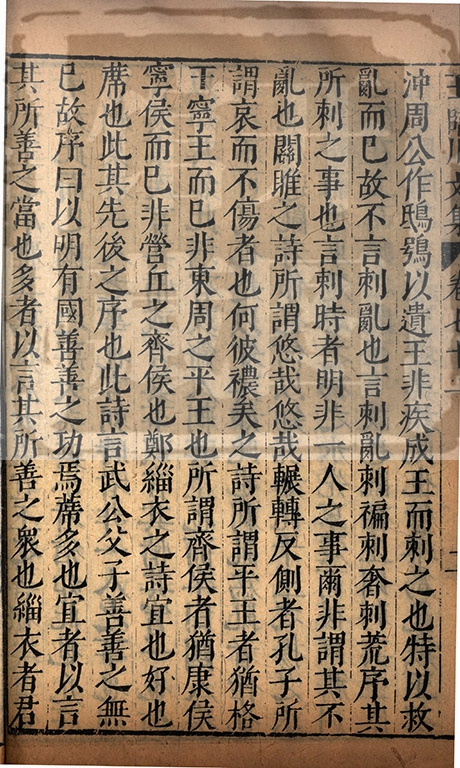 王臨川文集 卷七十二
沖周公作鴟鴞以遺王非疾成王而刺之也特以救
亂而已故不言刺亂也言刺亂刺褊刺奢刺荒序其
所刺之事也言刺時者明非一人之事爾非謂其不
亂也關雎之詩所謂悠哉悠哉輾轉反側者孔子所
謂哀而不傷者也何彼襛矣之詩所謂平王者猶格
王寧王而已非東周之平王也所謂齊侯者猶康侯
寧侯而已非營丘之齊侯也鄭緇衣之詩宜也好也
蓆也此其先後之序也此詩言武公父子善善之無
已故序曰以明有國善善之功焉蓆多也宜者以言
其所善之當也多者以言其所善之衆也緇衣者君